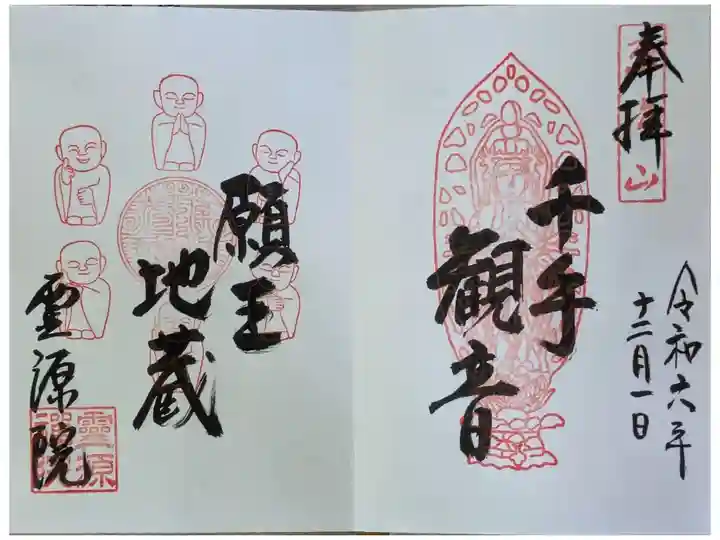 奉拝
山
令和六年
十二月一日
千手
観音
願王
地蔵
霊源院
霊源